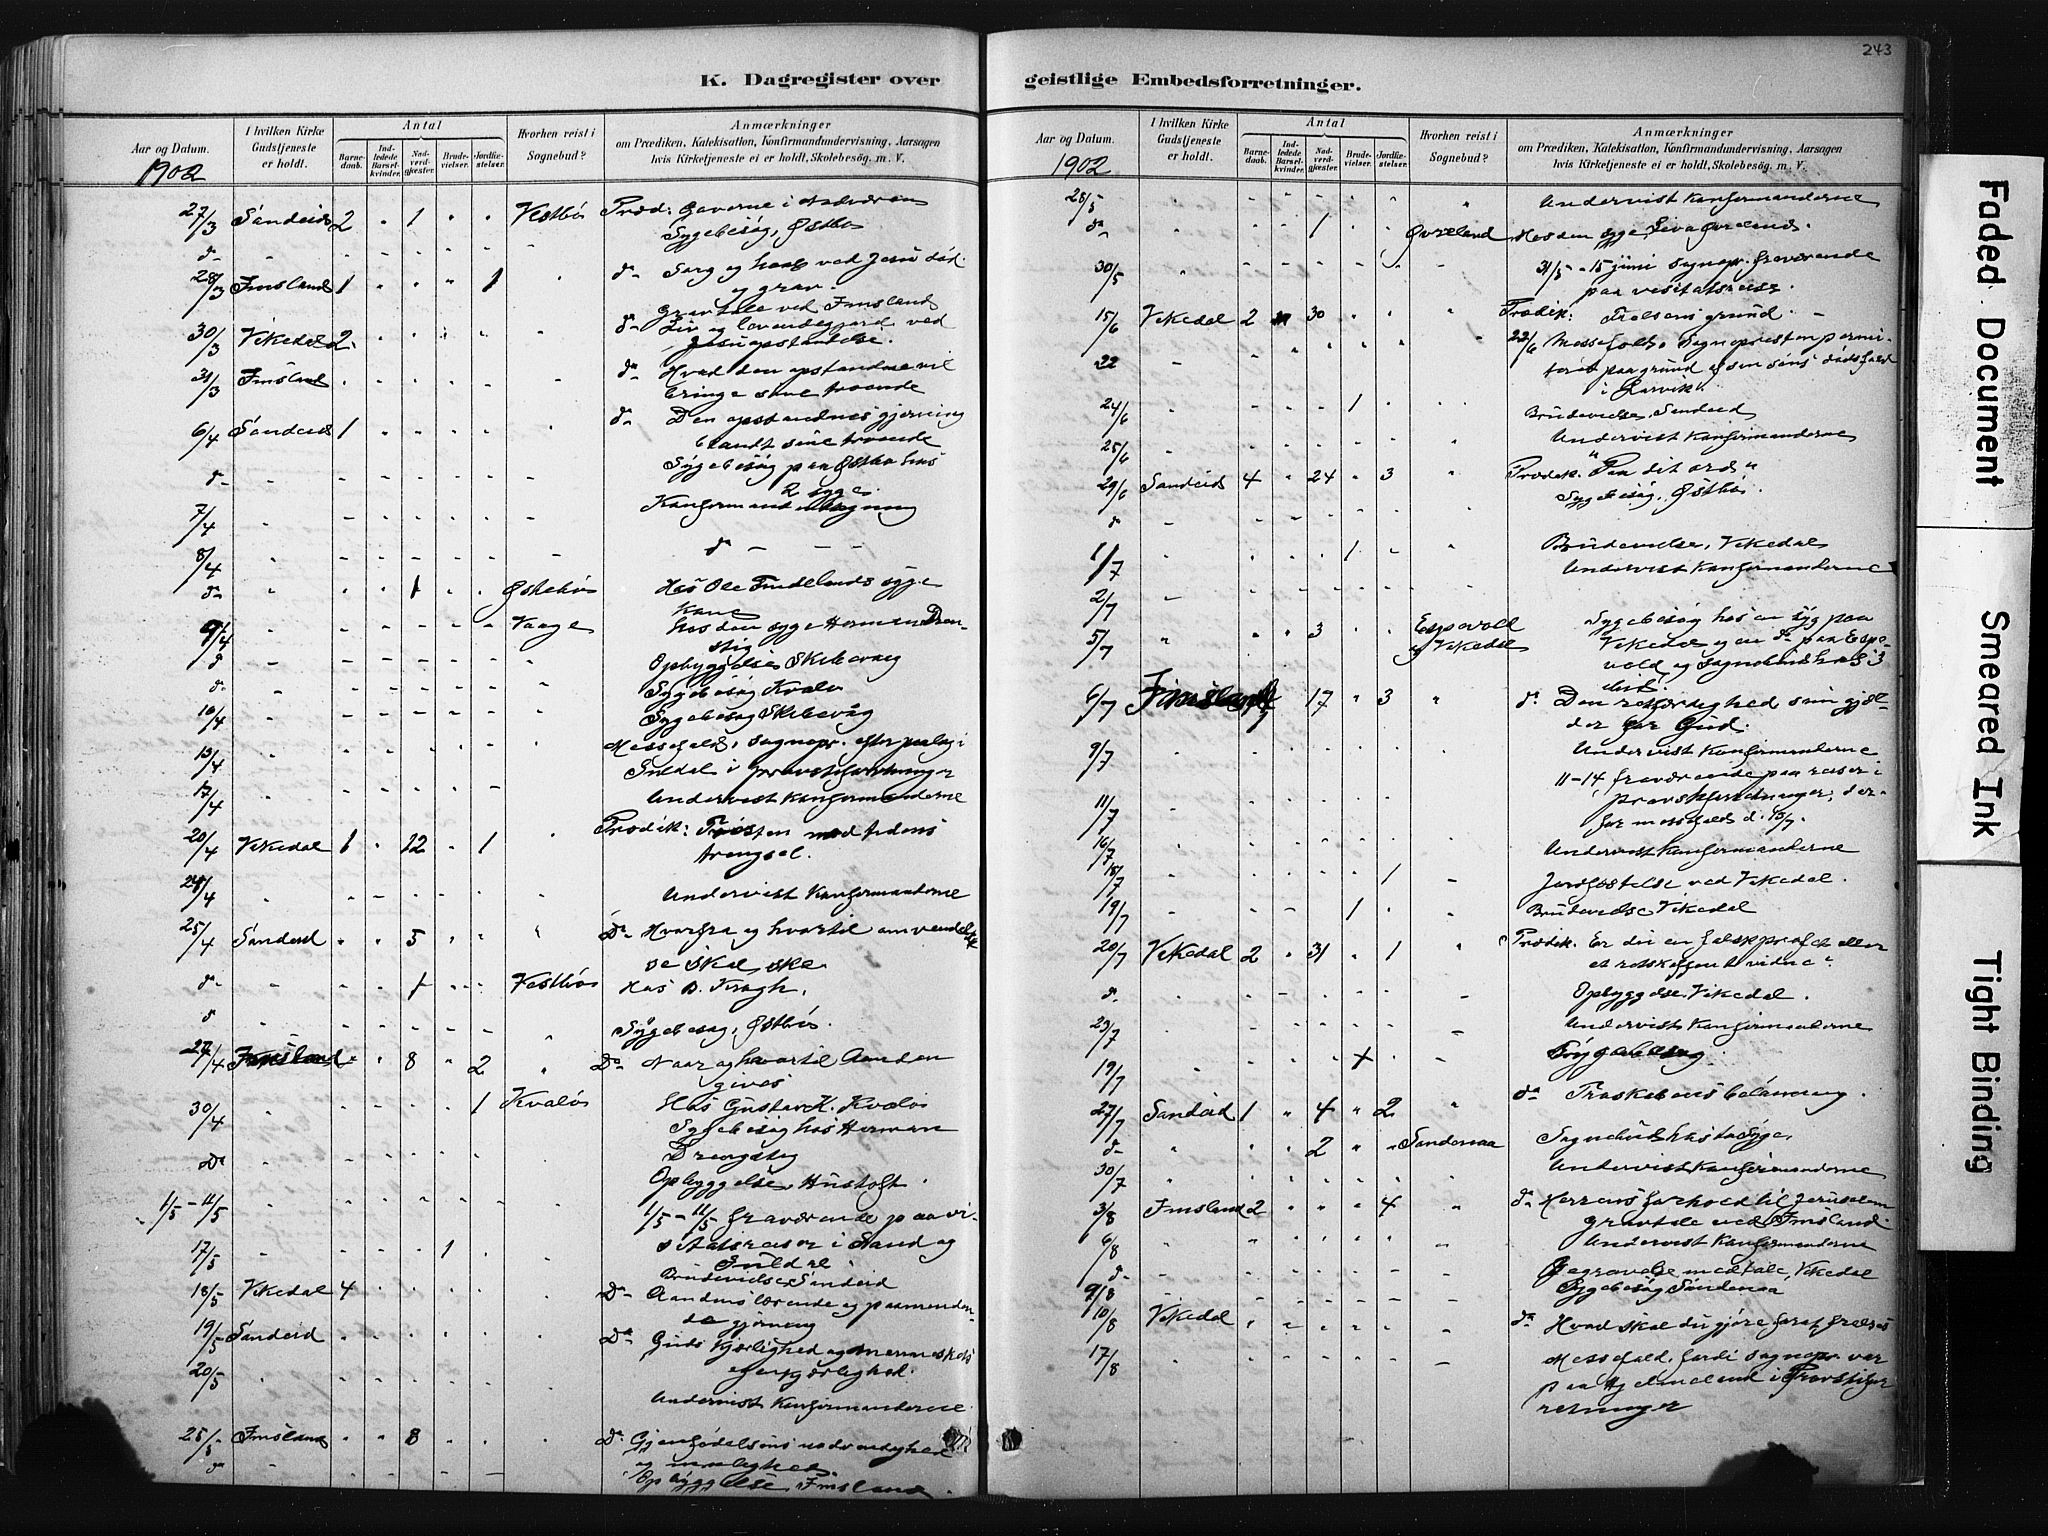 243
K. Dagregister over geistlige Embedsforretninger.
Aar og Datum. I hvilken Kirke Gudstjeneste er holdt. Antal Barnedaab. Indledede Barselkvinder. Nadverdgjester. Brudevielser. Jordfæstelser. Hvorhen reist i Sognebud? Anmærkninger om Prædiken, Katekisation, Konfirmandundervisning, Aarsagen hvis Kirketjeneste ei er holdt, Skolebesög. m. V.
1902
27/3 Sandeid 2 " 1 " " Vestbø Præd: Gaverne i
Sygebesög, Østbø
28/3 Imsland 1 " " " 1 " d° Sorg og haab ved Jesu død
og grav.
Gravtale ved Imsland
30/3 Vikedal 2 d° Liv og ved
Jesu opstandelse.
31/3 Imsland d° Hvad den opstandne vil
bringe sine troende
6/4 Sandeid 1 d° Den opstandnes gjerning
blandt sine troende
d° Sygebesög paa Østbø hos
2 syge.
7/4 Konfirmand
8/4 d° - - -
d° 1 Østebø Hos Ole syge
Kone
9/4 Vaage hos den syge Herman Dren-
stig
d Opbyggelse Skibevaag
d° Sygebesög Kvalø
10/4 Sygebesög Skibevåg
13/4 Messefald, sognepr. efter paalæg i
Suldal i provstiforretninger
17/4 Undervist Konfirmanderne
20/4 Vikedal 1 " 12 " 1 Prædik: Trøsten mod tidens
trængsel.
24/4 Undervist Konfirmanderne
25/4 Sandeid " " 5 " " D° Hvorfra og hvortil omvendel-
se skal ske
d° 1 Vestbø Hos B. Kragh.
d Sygebesög, Østbø.
27/4 Imsland " " 8 " 2 D° Naar og hvortil Aanden
gives
30/4 1 Kvalø Hos Gustav K. Kvalø
Sygebesög hos Herman
D° Drengstig
Opbyggelse, Hustoft.
1/5 - 11/5 1/5 - 11/5 fraværende paa vi-
sitatsreiser i Sand og
Suldal
17/5 1 Brudevielse, Sandeid
18/5 Vikedal 4 D° Aandens lærende og paaminden-
de gjerning
19/5 Sandeid D° Guds Kjærlighed og menneskets
20/5 Undervist Konfirmanderne
25/5 Imsland " " 8 D° Gjenfødelsens nødvendighed
og mulighed.
d° Opbyggelse, Imsland.
Aar og Datum. I hvilken Kirke Gudstjeneste er holdt. Antal Barnedaab. Indledede Barselkvinder. Nadverdgjester. Brudevielser. Jordfæstelser. Hvorhen reist i Sognebud? Anmærkninger om Prædiken, Katekisation, Konfirmandundervisning, Aarsagen hvis Kirketjeneste ei er holdt, Skolebesög, m. V.
1902
28/5 Undervist Konfirmanderne
d° 1 Øvreland Hos den syge Øvreland.
30/5 31/5 - 15 juni sognepr. fraværende
paa visitatsreise.
15/6 Vikedal 2 30 Prædik: Frelsens grund.
22 22/6 Messefald, Sognepresten permi-
teret paa grund af sin søns dødsfald
i Larvik.
24/6 1 Brudevielse, Sandeid
25/6 Undervist Konfirmanderne
29/6 Sandeid 4 " 24 " 3 Prædik. "Paa dit ord"
d° Sygebesög, Østbø.
1/7 1 Brudevielse, Vikedal
2/7 Undervist Konfirmanderne
5/7 3 Espevold og Vikedal Sygebesög hos en syg paa
Vikedal og en d° paa Espe-
vold og sognebud hos 3
6/7 Imsland 17 " 3 d° Den retfærdighed som gjæl-
der for Gud.
9/7 Undervist Konfirmanderne
11/7 11-14 fraværende paa reiser i
provstiforretninger, der-
for messefald d. 13/7.
16/7 Undervist Konfirmanderne
18/7 1 Jordfæstelse ved Vikedal.
19/7 1 Brudevielse Vikedal
20/7 Vikedal 2 " 31 " 1 Prædik. Er du en falsk profet eller
et retskaffent vidne?
d° Opbyggelse, Vikedal.
23/7 Undervist Konfirmanderne
19/7 Sygebesög
27/7 Sandeid 1 " 4 " 2 d° Troskabens belønning.
d° 2 Sandenaa Sognebud hos to Syge.
30/7 Undervist Konfirmanderne
3/8 Imsland 2 " " " 4 d° Herrens forhold til Jerusalem
gravtale ved Imsland.
6/8 Undervist Konfirmanderne
d° Begravelse med tale, Vikedal
9/8 Sygebesög Sandenaa
10/8 Vikedal d° Hvad skal du gjøre for at frelses
17/8 Messefald, fordi sognepr. var
paa Hjelmeland i Provstifor-
retninger
Faded Document
Smeared Ink
Tight Binding